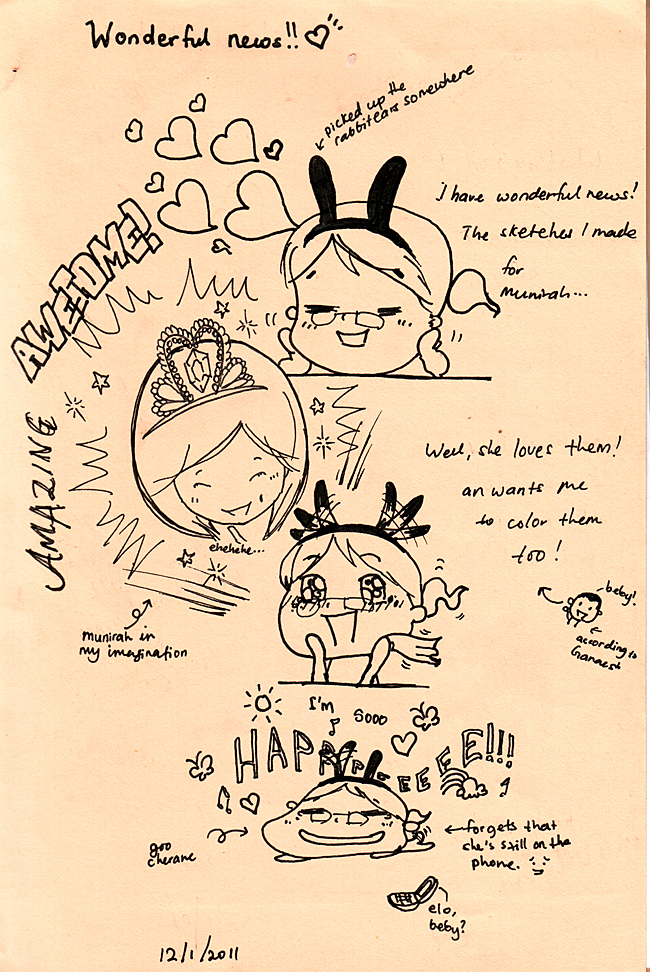 Wonderful news!!
picked up the
rabbit ears somewhere
I have wonderful news!
The sketches I made
for
munirah...
AWESOME!
AMAZING
ehehehe...
munirah in
my imagination
Well, she loves them!
an wants me
to color them
too!
beby!
according to
I'm
sooo
HAPPPEEEEE!!!
goo
cherane
forgets that
she's still on the
phone.
elo,
beby?
12/1/2011